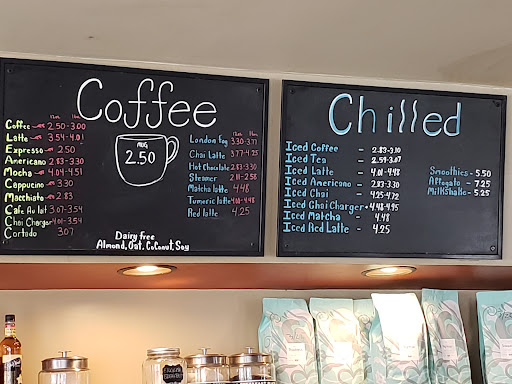 Coffee
12oz. 16oz.
Coffee 2.50-3.00
Latte 3.54-4.01
Espresso 2.50
Americano 2.83-3.30
Mocha 4.04-4.51
Cappucino 3.30
Macchiato 2.83
Cafe Au lait 3.07-3.54
Chai Charger 4.01-4.54
Cortado 3.07
MUG
2.50
12oz. 16oz.
London Fog 3.30-3.77
Chai Latte 3.77-4.25
Hot Chocolate 2.83-3.30
Steamer 2.11-2.58
Matcha latte 4.48
Tumeric latte 4.01-4.48
Red latte 4.25
Dairy Free
Almond, Oat, Coconut, Soy
Chilled
Iced Coffee - 2.83-3.10
Iced Tea - 2.59-3.07
Iced Latte - 4.01-4.48
Iced Americano - 2.83-3.30
Iced Chai - 4.25-4.72
Iced Chai Charger 4.48-4.95
Iced Matcha - 4.48
Iced Red Latte - 4.25
Smoothies - 5.50
Affogato - 7.25
Milkshake - 5.25